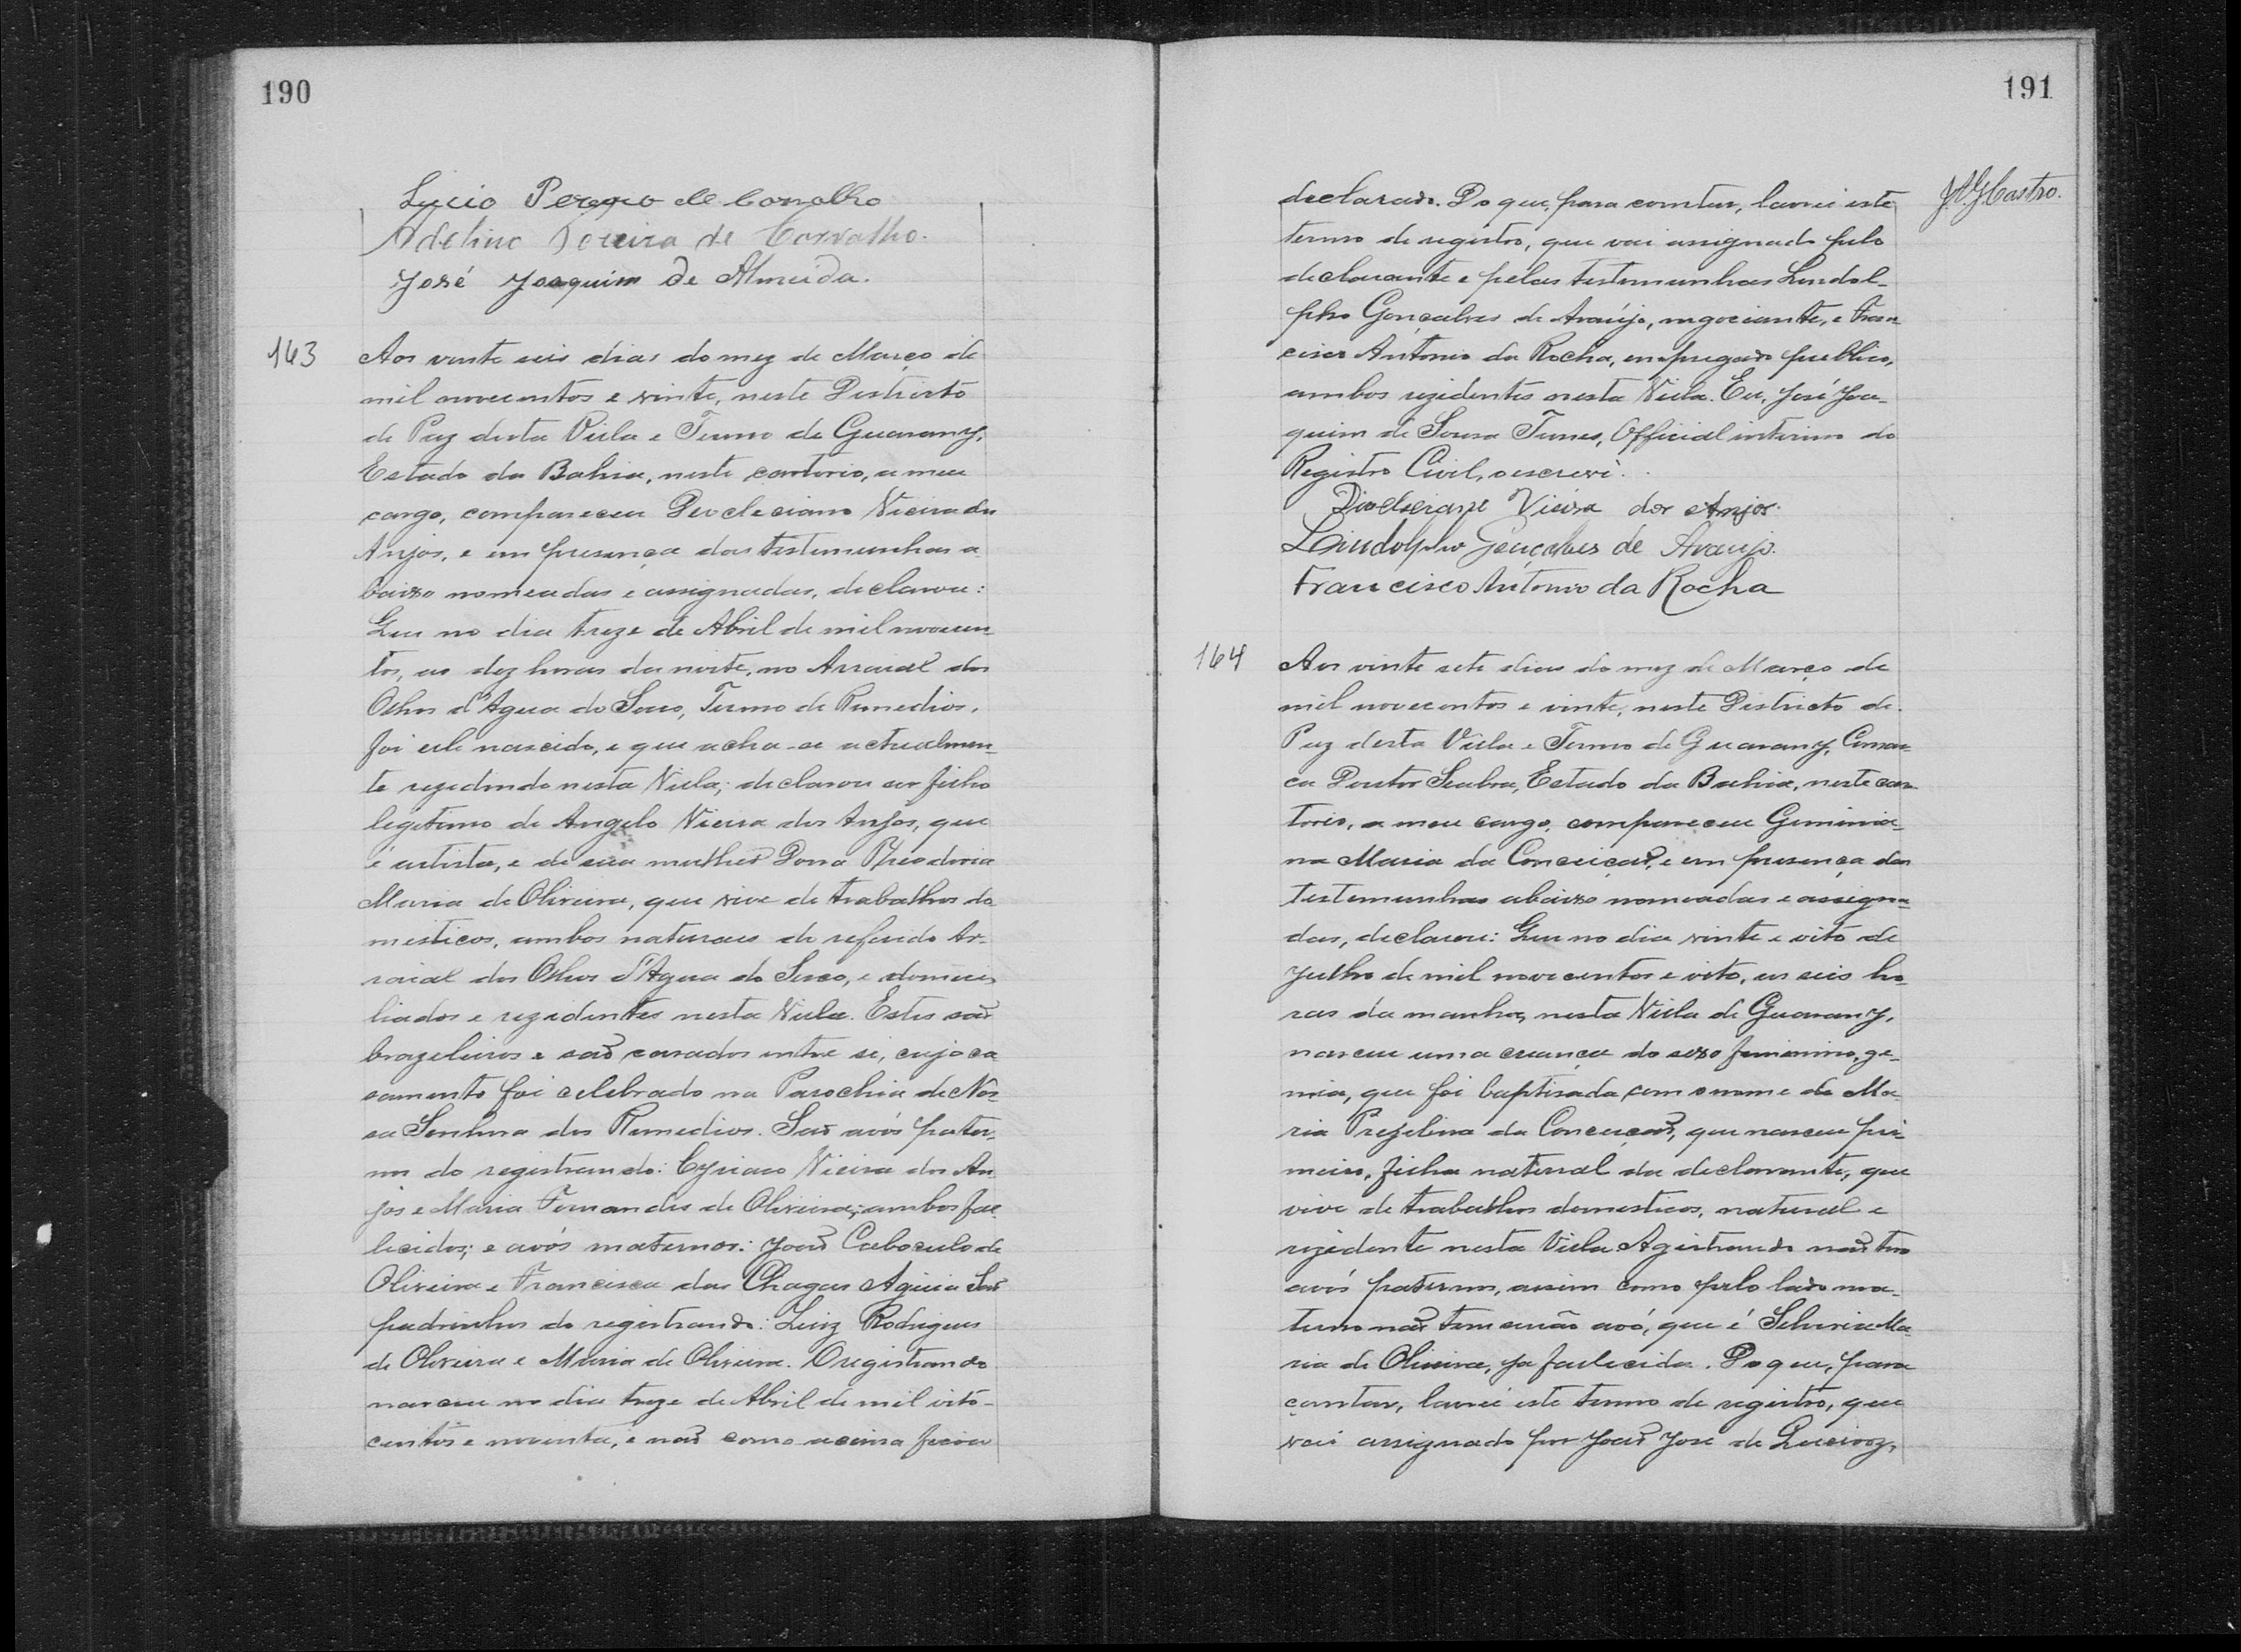 190
Lucio Pereira de Carvalho
Adelino Pereira de Carvalho.
José Joaquim de Almeida.
163
Aos vinte seis dias do mez de Março de
mil novecentos e vinte, neste Districto
de Paz desta Villa e Termo de Guarany,
Estado da Bahia, neste cartorio, a meu
cargo, compareceu Deocleciano Vieira dos
Anjos, e em presença das testemunhas a
baixo nomeadas e assignadas, declarou:
Que no dia treze de Abril de mil novecen-
tos, as dez horas da noite, no Arraial dos
Olhos d'Agua do Seco, Termo de Remedios,
foi elle nascido, e que acha-se actualmen-
te rezidindo nesta Villa; declarou ser filho
legitimo de Angelo Vieira dos Anjos, que
é artista, e de sua mulher Dona Theodoria
Maria de Oliveira, que vive de trabalhos do
mesticos, ambos naturaes do referido Ar-
raial dos Olhos d'Agua do Seco, e domici-
liados e rezidentes nesta Villa. Estes são
brazileiros e são casados entre si, cujo ca
samento foi celebrado na Parochia de Nos-
sa Senhora dos Remedios. São avós pater-
nos do registrando: Cyriaco Vieira dos An-
jos e Maria Fernandes de Oliveira; ambos fal-
lecidos; e avós maternos: João Caboculo de
Oliveira e Francisca das Chagas Aguia São
padrinhos do registrando: Luiz Rodrigues
de Oliveira e Maria de Oliveira. O registrando
nasceu no dia treze de Abril de mil oito-
centos e noventa, e não como acima ficou
191
declarado. Do que, para constar, lavrei este
termo de registro, que vai assignado pelo
declarante e pelas testemunhas Lindol-
pho Gonçalves de Araújo, negociante, e Fran-
cisco Antonio da Rocha, empregado publico,
ambos rezidentes nesta Villa. Eu, José Joa-
quim de Sousa Tunes, Official interino do
Registro Civil, o escrevi.
Diocleciano Vieira dos Anjos.
Lindolpho Gonçalves de Araujo.
Francisco Antonio da Rocha
Castro.
164
Aos vinte sete dias do mez de Março de
mil novecentos e vinte, neste Districto de
Paz desta Villa e Termo de Guarany, Comar-
ca Doutor Seabra, Estado da Bahia, neste car-
torio, a meu cargo, compareceu Geminia-
na Maria da Conceição, e em presença das
testemunhas abaixo nomeadas e assigna-
das, declarou: Que no dia vinte e oito de
Julho de mil novecentos e oito, as seis ho-
ras da manhã, nesta Villa de Guarany,
nasceu uma criança do sexo feminino, ge-
mia, que foi baptisada com o nome de Ma-
ria Prezilina da Conceição, que nasceu pri-
meiro, filha natural da declarante, que
vive de trabalhos domesticos, natural e
rezidente nesta Villa A gistrando não tem
avós paternos, assim como pelo lado ma-
terno não tem senão avó, que é Silveria Ma-
ria de Oliveira, ja fallecida. Do que, para
constar, lavrei este termo de registro, que
vai assignado por João José de Queiroz,